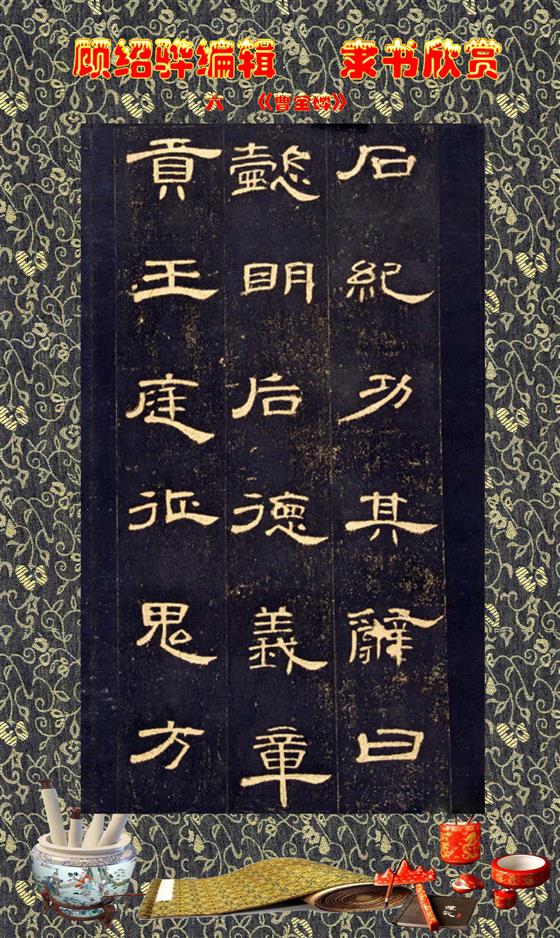 顾绍骅编辑 隶书欣赏
六 《曹全碑》
石紀功其辭曰
懿明后德義章
貢王庭征鬼方